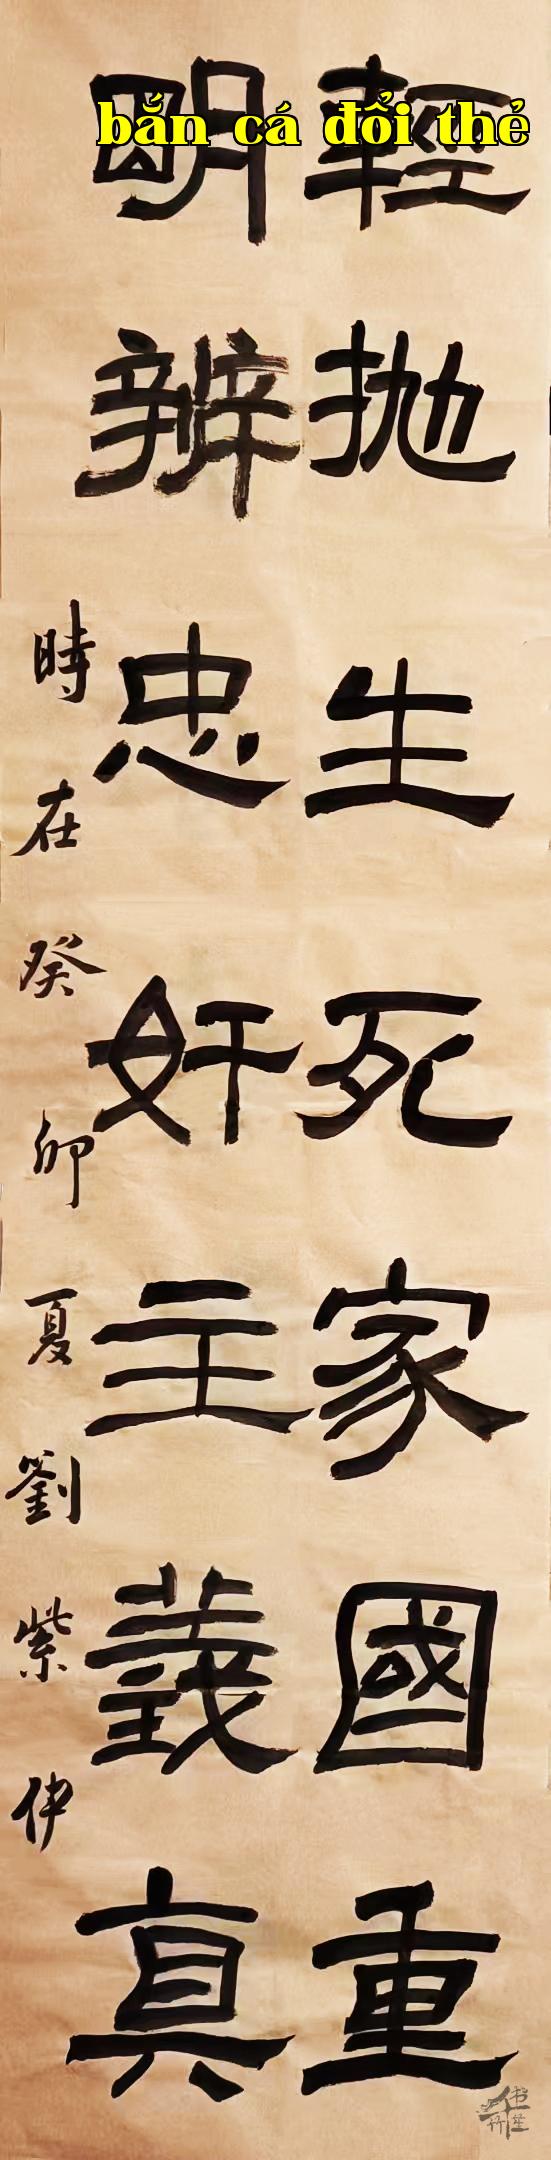 bắn cá đổi thẻ
輕抛生死家國重
明辨忠奸主義真
時在癸卯夏劉紫伊